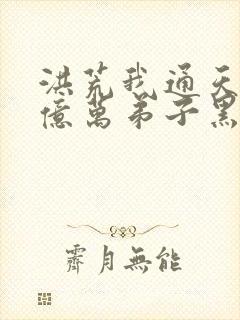 洪荒我通天
億萬弟子黑
霽月無能